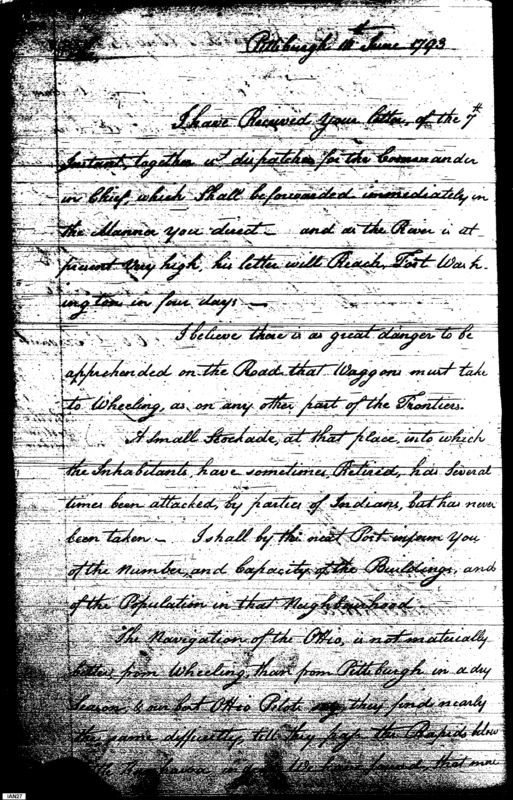 Pittsburgh 14th June 1793
I have Received your letter, of the 7th
Instant, together wt dispatches for the Commander
in Chief, which Shall be forwarded immediately, in
the Manner you direct — and as the River is at
present Very high, his letter will Reach, Fort Wash-
ington in four days —
I believe there is as great danger to be
apprehended on the Road that Waggons must take
to Wheeling, as on any other part of the Frontiers.
A Small Stockade, at that place, into which
the Inhabitants, have sometimes, Retired, has Several
times been attacked, by parties of Indians, but has never
been taken — I shall by the next Post inform you
of the number, and Capacity of the Buildings, and
of the Population in that Neighbourhood
The Navigation of the Ohio, is not materially
better from Wheeling, than from Pittsburgh in a dry
Season & our best Ohio Pilots say, they find nearly
the same difficulty, till they pass the Rapids below
found that more
IAN27